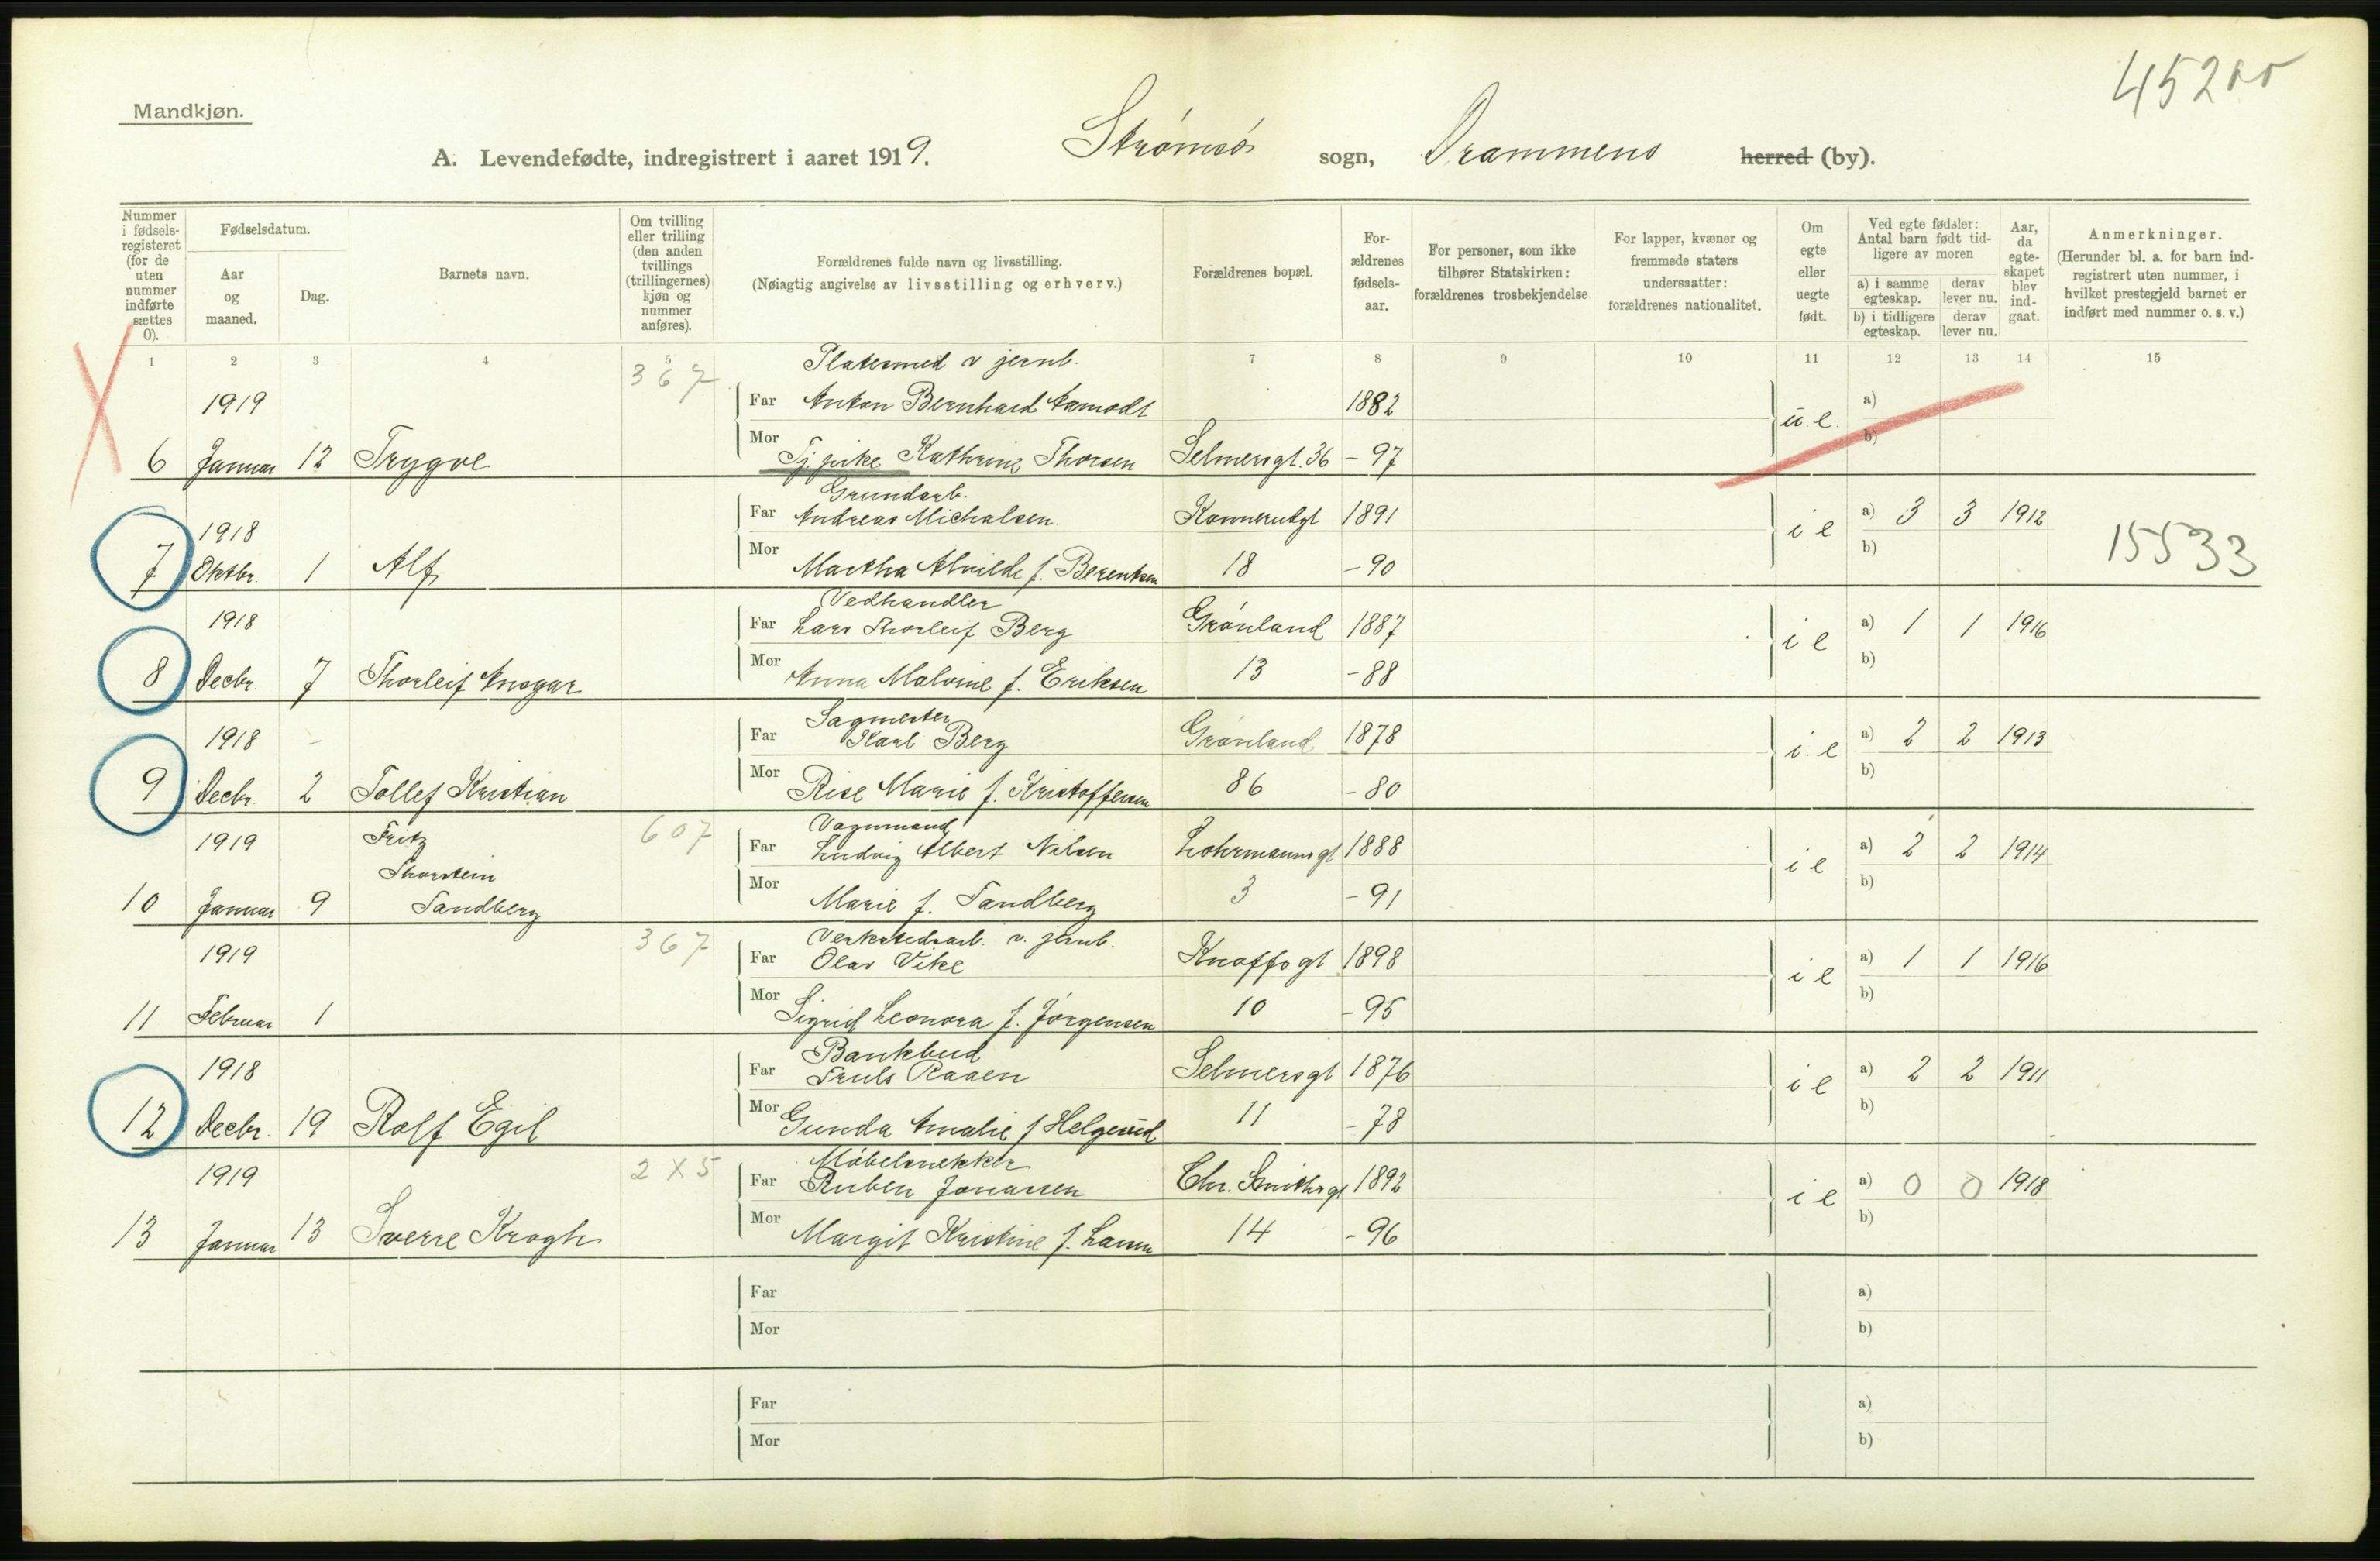 45200
Mandkjøn.
A. Levendefødte, indregistrert i aaret 1919. Strømsø sogn, Drammens herred (by).
Nummer i fødsels-registeret (for de uten nummer indførte sættes 0).
Fødselsdatum.
Aar og maaned.
Dag.
Barnets navn.
Om tvilling eller trilling (den anden tvillings (trillingernes) kjøn og nummer anføres).
Forældrenes fulde navn og livsstilling.
(Nøiagtig angivelse av livsstilling og erhverv.)
Forældrenes bopæl.
For-ældrenes fødsels-aar.
For personer, som ikke tilhører Statskirken: forældrenes trosbekjendelse
For lapper, kvæner og fremmede staters undersaatter: forældrenes nationalitet.
Om egte eller uegte født.
Ved egte fødsler: Antal barn født tid-ligere av moren
a) i samme egteskap. derav lever nu.
b) i tidligere egteskap. derav lever nu.
Aar, da egte-skapet blev ind-gaat.
Anmerkninger.
(Herunder bl. a. for barn ind-registrert uten nummer, i hvilket prestegjeld barnet er indført med nummer o. s. v.)
1 2 3 4 5 7 8 9 10 11 12 13 14 15
367 Platesmed v jernb.
1919 Far Anton Bernhard Aamodt 1882 u.e. a)
6 Januar 12 Trygve Mor Tj.pike Kathrine Thorsen Selmersgt. 36 – 97 b)
Grundarb.
1918 Far Andreas Michalsen Konnerudgt 1891 i e a) 3 3 1912
7 Oktbr. 1 Alf Mor Martha Alvilde f. Berentsen 18 – 90 b) 15533
Vedhandler
1918 Far Lars Thorleif Berg Grønland 1887 i e a) 1 1 1916
8 Decbr. 7 Thorleif Ansgar Mor Anna Malvine f. Eriksen 13 – 88 b)
Sagmester
1918 Far Karl Berg Grønland 1878 i. e a) 2 2 1913
9 Decbr. 2 Tollef Kristian Mor Rise Marie f. Kristoffersen 86 – 80 b)
Fritz 607 Vognmand
1919 Far Ludvig Albert Nilsen Lohrmannsgt 1888 i e a) 2 2 1914
Thorstein
10 Januar 9 Sandberg Mor Marie f. Sandberg 3 – 91 b)
367 Verkstedsarb. v. jernb.
1919 Far Olav Vike Knoffsgt 1898 i e a) 1 1 1916
11 Februar 1 Mor Sigrid Leonora f. Jørgensen 10 – 95 b)
Bankbud
1918 Far Truls Raaen Selmersgt 1876 i e a) 2 2 1911
12 Decbr. 19 Rolf Egil Mor Gunda Amalie f Helgerud 11 – 78 b)
Møbelsnekker
1919 2 X 5 Far Ruben Jonassen Chr. Smithsgt 1892 i e a) 0 0 1918
13 Januar 13 Sverre Krogh Mor Margit Kristine f. Larsen 14 – 96 b)
Far a)
Mor b)
Far a)
Mor b)